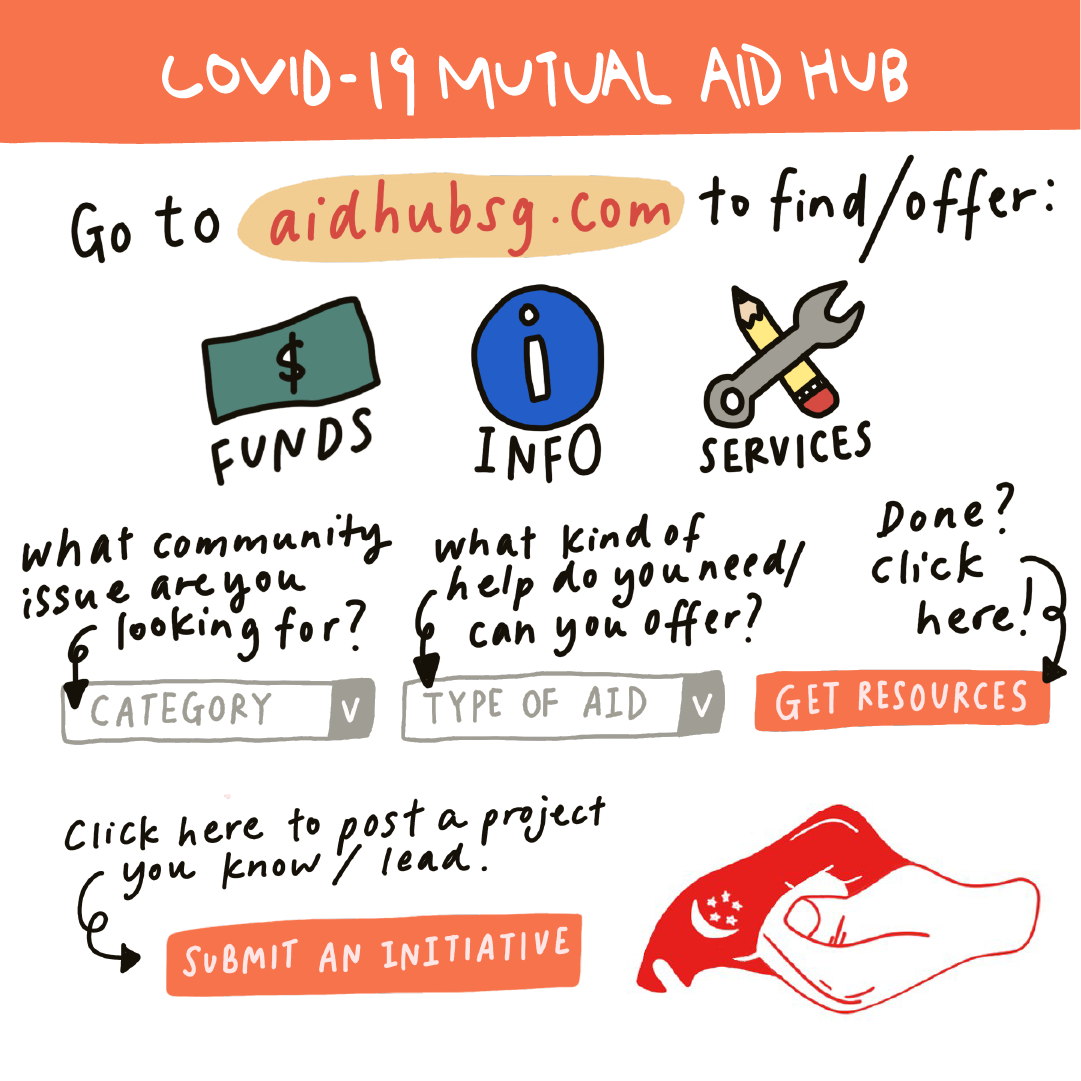 COVID-19 MUTUAL AID HUB
Go to aidhubsg.com to find/offer:
$
i
FUNDS
INFO
SERVICES
what community
issue are you
looking for?
what kind of
help do you need/
can you offer?
Done?
click
here!
CATEGORY V
TYPE OF AID V
GET RESOURCES
Click here to post a project
you know / lead.
SUBMIT AN INITIATIVE